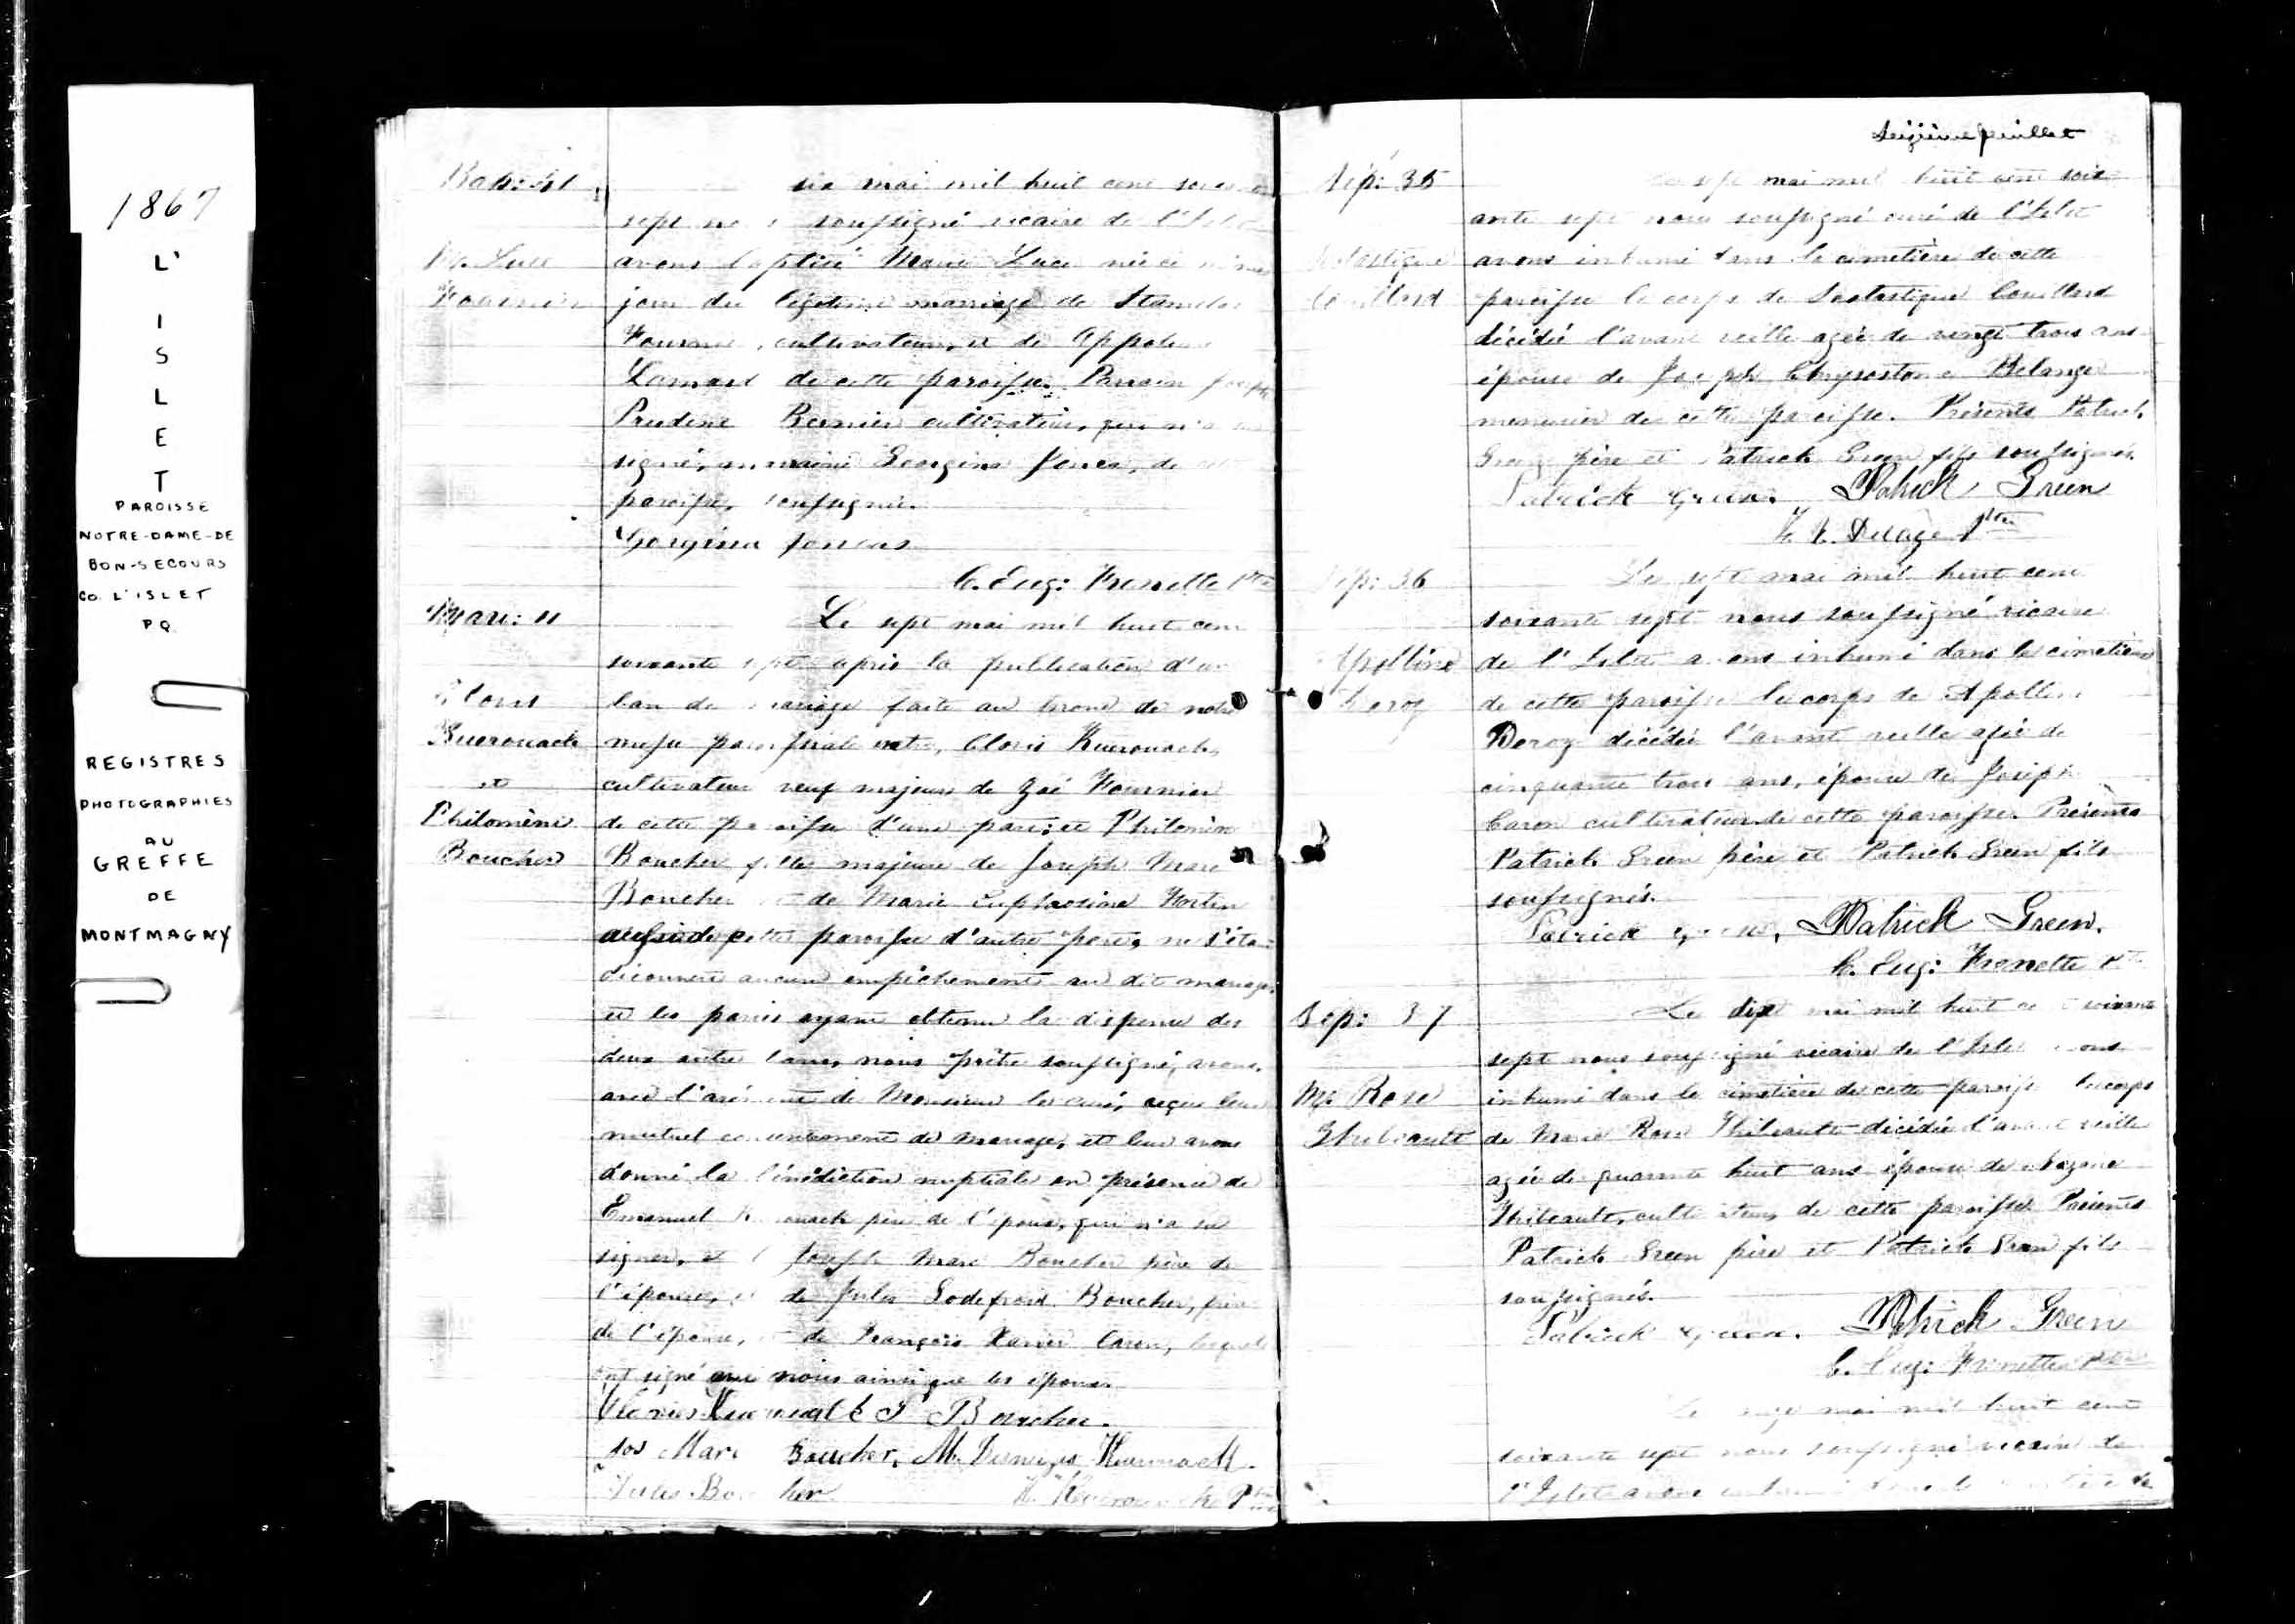 1867
L'
I
S
L
E
T
PAROISSE
NOTRE-DAME-DE
BON-SECOURS
CO. L'ISLET
PQ.
REGISTRES
PHOTOGRAPHIES
AU
GREFFE
DE
MONTMAGNY
six mai mil huit cent
sept soussigné vicaire de l'Islet
M. Luce
avons baptisé Marie Luce née ce
Fournier
jour du légitime mariage de Stanislas
cultivateur, et de
de cette paroisse. Parrain Joseph
Bernier cultivateur, qui n'a
signé, marraine Georgina de
paroisse, soussignée.
C. Eug: Frenette Ptre
Mari: 11
Le sept mai mil huit cent
soixante sept après la publication d'un
ban de mariage faite au prone de notre
Kuerouack
messe paroissiale entre, Clovis Kuerouack,
et
cultivateur veuf majeur de Zoé Fournier
Philomène
de cette paroisse d'une part; et Philomène
Boucher
Boucher fille majeure de Joseph Marc
Boucher et de Marie Euphrosine Fortin
aussi de cette paroisse d'autre part, ne s'étant
découvert aucun empêchement au dit mariage
et les parties ayant obtenu la dispense des
deux autre bans, nous prêtre soussigné, avons,
avec l'agrément de Monsieur le curé, reçu leur
mutuel consentement de mariage, et leur avons
donné la bénédiction nuptiale en présence de
Emanuel père de l'époux, qui n'a su
signer, et Joseph Marc Boucher père de
l'épouse, et de Jules Godefroid Boucher, frère
de l'épouse, et de François Xavier Caron, lesquels
ont signé avec nous ainsi que les époux.
P Boucher.
Jos Marc Boucher,
Jules Boucher
Seizième feuillet
Sép: 35
sept mai mil huit cent soix-
ante sept nous soussigné curé de l'Islet
avons inhumé dans le cimetière de cette
Couillard
paroisse le corps de Scolastique Couillard
décédée l'avant veille agée de vingt trois ans
épouse de Joseph Chrysostome Belanger
menuisier de cette paroisse. Présents Patrick
Green père et Patrick Green fils soussignés.
Patrick Green. Patrick Green
Delage Ptre
Sép: 36
Le sept mai mil huit cent
soixante sept nous soussigné vicaire
Apolline
de l'Islet avons inhumé dans le cimetière
Deroy
de cette paroisse le corps de Apolline
Deroy décédée l'avant veille agée de
cinquante trois ans, épouse de Joseph
Caron cultivateur de cette paroisse. Présents
Patrick Green père et Patrick Green fils
soussignés.
Patrick Green, Patrick Green.
C. Eug: Frenette Ptre
Sép: 37
Le dix mai mil huit cent soixante
sept nous soussigné vicaire de l'Islet avons
M. Rose
inhumé dans le cimetière de cette paroisse le corps
Thibeault
de Marie Rose Thibeault décédée l'avant veille
agée de quarante huit ans épouse de
Thibeault, cultivateur, de cette paroisse. Présents
Patrick Green père et Patrick Green fils
soussignés.
Patrick Green. Patrick Green
C. Eug: Frenette Ptre
Le mai mil huit cent
soixante sept nous soussigné vicaire de
l'Islet avons